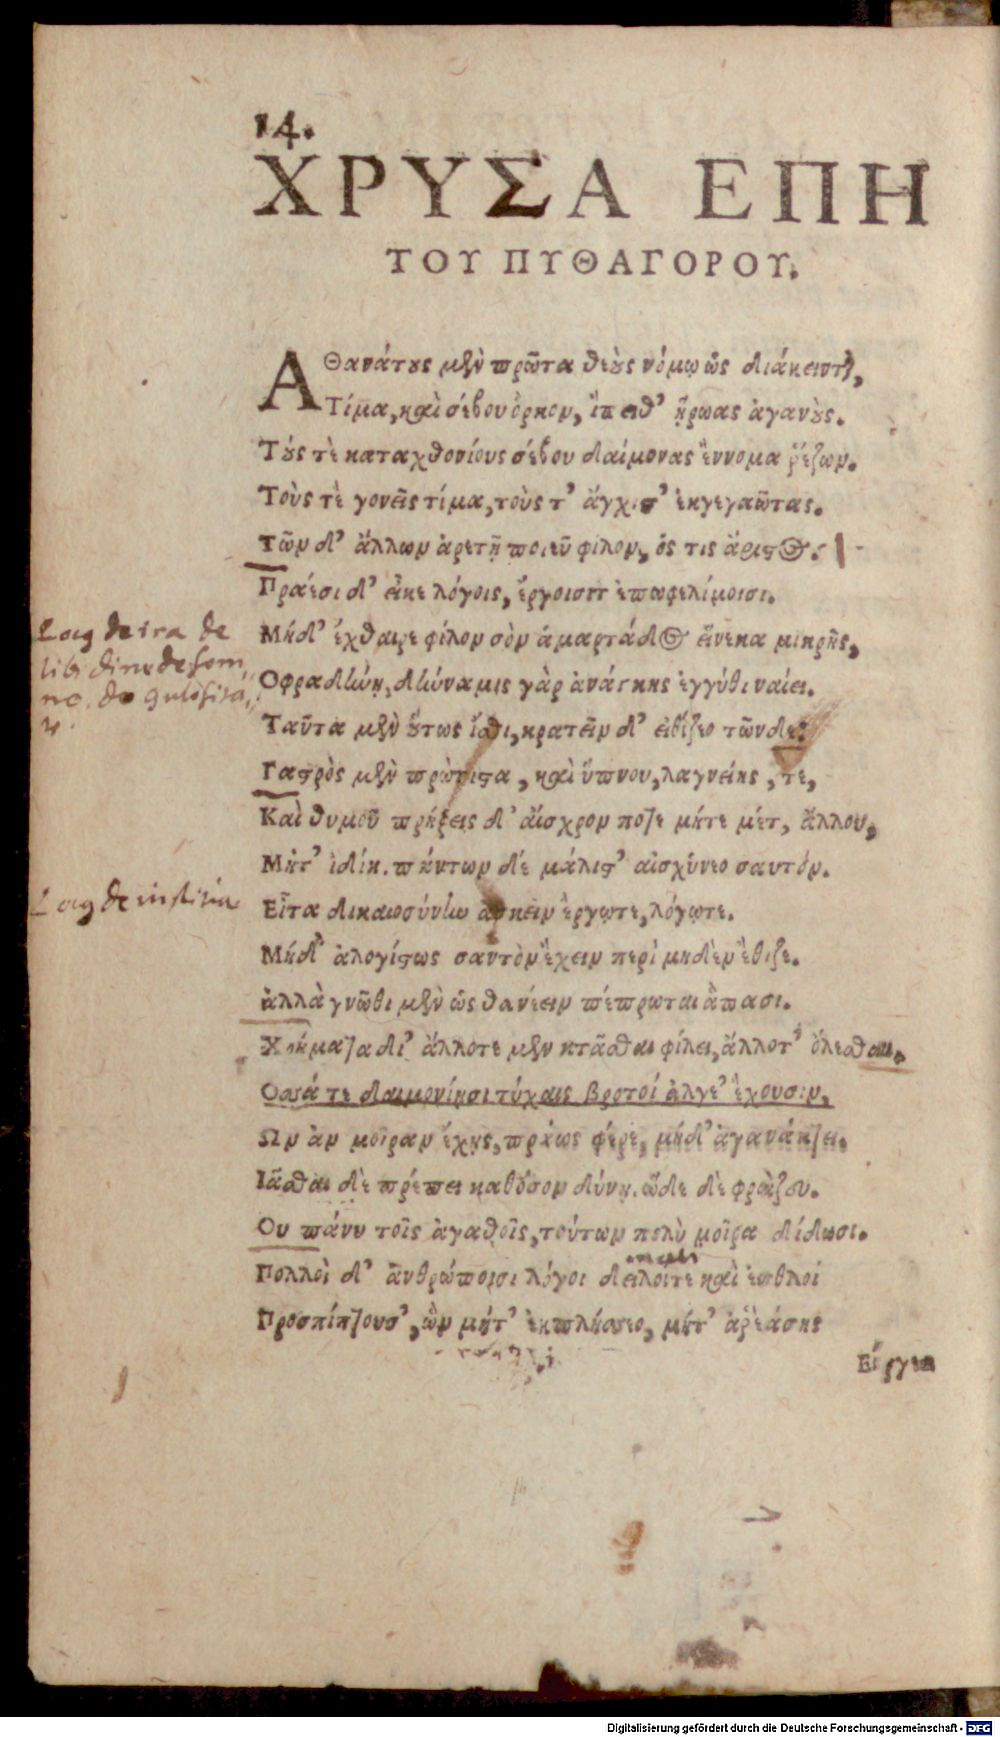 14.
ΧΡΥΣΑ ΕΠΗ
ΤΟΥ ΠΥΘΑΓΟΡΟΥ.
ΑΘανάτους μὲν πρῶτα θεοὺς νόμῳ ὡς διάκεινται,
Τίμα, καὶ σέβου ὅρκον, ἔπειθ' ἥρωας ἀγανούς.
Τούς τὲ καταχθονίους σέβου δαίμονας ἔννομα ῥέζων.
Τοὺς τὲ γονεῖς τίμα, τοὺς τ' ἄγχιστ' ἐκγεγαῶτας.
Τῶν δ' ἄλλων ἀρετῇ ποιεῦ φίλον, ὅς τις ἄριστος.
Πράεσι δ' εἶκε λόγοις, ἔργοισιτ' ἐπωφελίμοισι.
Μήδ' ἔχθαιρε φίλον σὸν ἁμαρτάδος εἵνεκα μικρῆς,
Οφρα δύνῃ, δύναμις γὰρ ἀνάγκης ἐγγύθι ναίει.
Ταῦτα μὲν οὕτως ἴσθι, κρατεῖν δ' εἰθίζεο τῶνδε:
Γαστρὸς μὲν πρώτιστα, καὶ ὕπνου, λαγνείης, τε,
Καὶ θυμοῦ πρήξεις δ' αἴσχρον ποτε μήτε μέτ, ἄλλου,
Μήτ' ἰδίῃ. πάντων δὲ μάλιστ' αἰσχύνεο σαυτόν.
Εἶτα δικαιοσύνην ἀσκεῖν ἔργῳτε, λόγῳτε.
Μήδ' ἀλογίστως σαυτὸν ἔχειν περὶ μηδὲν ἔθιζε.
ἀλλὰ γνῶθι μὲν ὡς θανέειν πέπρωται ἅπασι.
Χρήματα δ' ἄλλοτε μὲν κτᾶσθαι φίλει, ἄλλοτ' ὀλέσθαι.
Οσσά τε δαιμονίῃσι τύχαις βροτοί ἄλγε' ἔχουσιν,
Ων ἂν μοῖραν ἔχῃς, πράως φέρε, μήδ' ἀγανάκτει.
Ιᾶσθαι δὲ πρέπει καθόσον δύνῃ. ὧδε δὲ φράζευ.
Ου πάνυ τοῖς ἀγαθοῖς, τούτων πολὺ μοῖρα δίδωσι.
Πολλοὶ δ' ἀνθρώποισι λόγοι δειλοίτε καὶ ἐσθλοί
Προσπίπτουσ', ὧν μήτ' ἐκπλήσσεο, μήτ' ἄρ' ἐάσῃς
Εἴργειν
Log de ira de
libidine de som
no. de gulosita
Log de iustitia
Digitalisierung gefördert durch die Deutsche Forschungsgemeinschaft - DFG